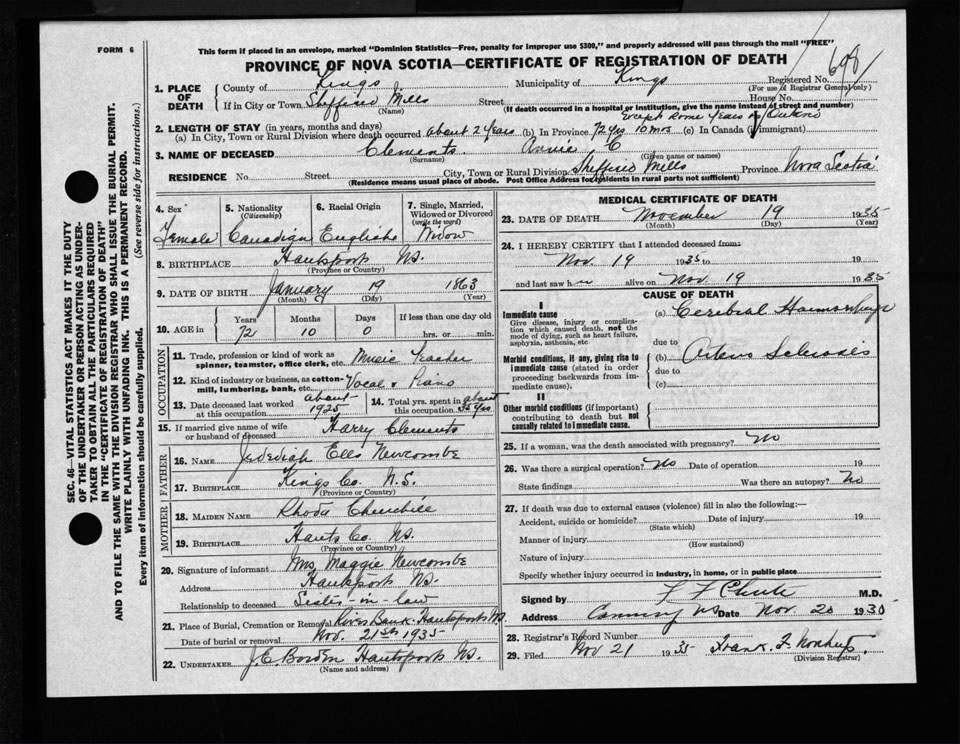 FORM 6
This form if placed in an envelope, marked "Dominion Statistics—Free, penalty for improper use $300," and properly addressed will pass through the mail "FREE"
PROVINCE OF NOVA SCOTIA—CERTIFICATE OF REGISTRATION OF DEATH
698
1. PLACE OF DEATH
County of Kings Municipality of Kings Registered No.
(For use of Registrar General only)
If in City or Town Sheffield Mills Street House No.
(Name) (If death occurred in a hospital or institution, give the name instead of street and number)
except some years in
2. LENGTH OF STAY (in years, months and days)
(a) In City, Town or Rural Division where death occurred about 2 years (b) In Province 72 yrs 10 mos (c) In Canada (if immigrant)
3. NAME OF DECEASED Clements Annie C
(Surname) (Given name or names)
RESIDENCE No. Street City, Town or Rural Division Sheffield Mills Province Nova Scotia
(Residence means usual place of abode. Post Office Address for residents in rural parts not sufficient)
4. Sex Female
5. Nationality (Citizenship) Canadian
6. Racial Origin English
7. Single, Married, Widowed or Divorced (write the word) Widow
8. BIRTHPLACE Hantsport NS.
(Province or Country)
9. DATE OF BIRTH January 19 1863
(Month) (Day) (Year)
10. AGE in Years 72 Months 10 Days 0 If less than one day old hrs. or min.
OCCUPATION
11. Trade, profession or kind of work as spinner, teamster, office clerk, etc. Music Teacher
12. Kind of industry or business, as cotton-mill, lumbering, bank, etc. Vocal & Piano
13. Date deceased last worked at this occupation about 1925
14. Total yrs. spent in this occupation about yrs
15. If married give name of wife or husband of deceased Harry Clements
FATHER
16. NAME Jedediah Ells Newcombe
17. BIRTHPLACE Kings Co. N.S.
(Province or Country)
MOTHER
18. MAIDEN NAME Rhoda Churchill
19. BIRTHPLACE Hants Co. NS.
(Province or Country)
20. Signature of informant Mrs. Maggie Newcombe
Address Hantsport NS.
Relationship to deceased Sister-in-law
21. Place of Burial, Cremation or Removal River Bank. Hantsport NS
Date of burial or removal Nov. 21st 1935
22. UNDERTAKER J.E. Borden Hantsport NS.
(Name and address)
MEDICAL CERTIFICATE OF DEATH
23. DATE OF DEATH November 19 1935
(Month) (Day) (Year)
24. I HEREBY CERTIFY that I attended deceased from:
Nov. 19 1935 to 19
and last saw her alive on Nov 19 1935
CAUSE OF DEATH
I
Immediate cause
Give disease, injury or complication which caused death, not the mode of dying, such as heart failure, asphyxia, asthenia, etc.
(a) Cerebral Haemorrhage
due to
Morbid conditions, if any, giving rise to immediate cause (stated in order proceeding backwards from immediate cause).
(b) Arterio Sclerosis
due to
(c)
II
Other morbid conditions (if important) contributing to death but not causally related to immediate cause.
25. If a woman, was the death associated with pregnancy? No
26. Was there a surgical operation? No Date of operation 19
State findings Was there an autopsy? No
27. If death was due to external causes (violence) fill in also the following:—
Accident, suicide or homicide? Date of injury 19
(State which)
Manner of injury
(How sustained)
Nature of injury
Specify whether injury occurred in industry, in home, or in public place
Signed by F F Chute M.D.
Address Canning NS Date Nov. 20 1935
28. Registrar's Record Number
29. Filed Nov 21 1935 Frank. F.
(Division Registrar)
SEC. 46—VITAL STATISTICS ACT MAKES IT THE DUTY
OF THE UNDERTAKER OR PERSON ACTING AS UNDER-
TAKER TO OBTAIN ALL THE PARTICULARS REQUIRED
IN THE "CERTIFICATE OF REGISTRATION OF DEATH"
AND TO FILE THE SAME WITH THE DIVISION REGISTRAR WHO SHALL ISSUE THE BURIAL PERMIT.
WRITE PLAINLY WITH UNFADING INK. THIS IS A PERMANENT RECORD.
Every item of information should be carefully supplied. (See reverse side for instructions.)